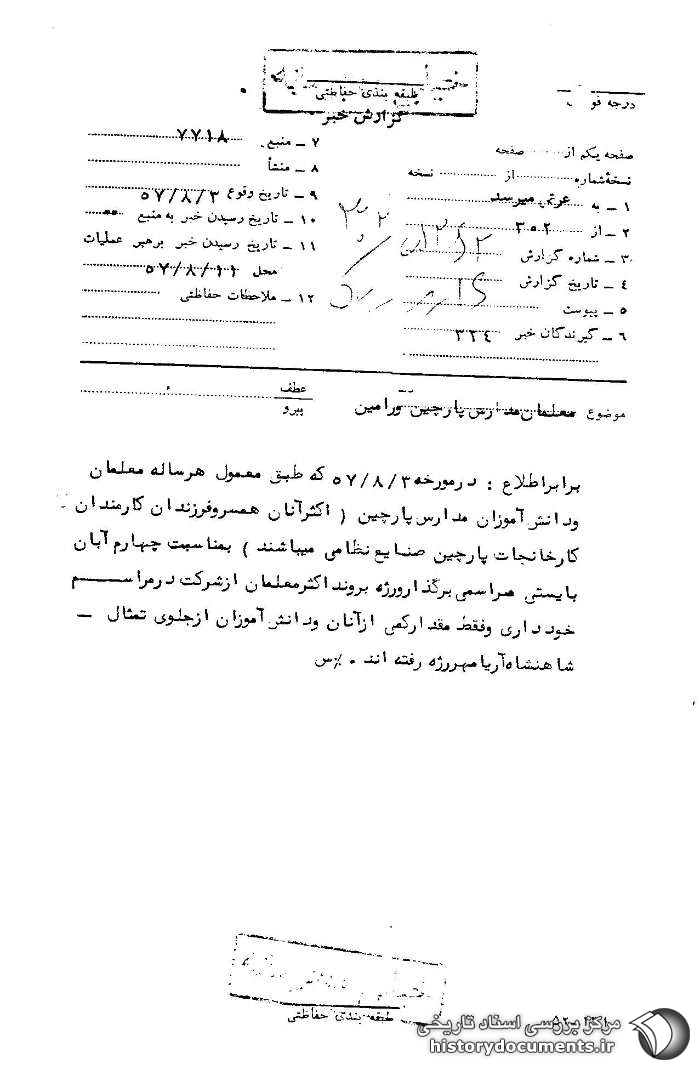 طبقه بندی حفاظتی
گزارش خبر
درجه
صفحه یکم از ........ صفحه
نسخهٔ شماره ........ از ........ نسخه
۱ ـ به عرض میرسد
۲ ـ از ۳۵۲
۳ ـ شماره گزارش
۴ ـ تاریخ گزارش
۵ ـ پیوست
۶ ـ گیرندگان خبر ۳۳٤
۷ ـ منبع ۷۷۱۸
۸ ـ منشأ
۹ ـ تاریخ وقوع ۵۷/۸/۳
۱۰ ـ تاریخ رسیدن خبر به منبع
۱۱ ـ تاریخ رسیدن خبر برهبر عملیات
محل ۵۷/۸/۱۱
۱۲ ـ ملاحظات حفاظتی
موضوع معلمان مدارس پارچین ورامین
عطف
پیرو
برابر اطلاع : درمورخه ۵۷/۸/۳ که طبق معمول هرساله معلمان
ودانش آموزان مدارس پارچین ( اکثرآنان همسروفرزندان کارمندان
کارخانجات پارچین صنایع نظامی میباشند ) بمناسبت چهارم آبان
بایستی مراسمی برگذارورژه بروند اکثرمعلمان ازشرکت درمراسم
خود داری وفقط مقدارکمی ازآنان ودانش آموزان ازجلوی تمثال ـ
شاهنشاه آریامهررژه رفته اند .
طبقه بندی حفاظتی
مرکز بررسی اسناد تاریخی
historydocuments.ir